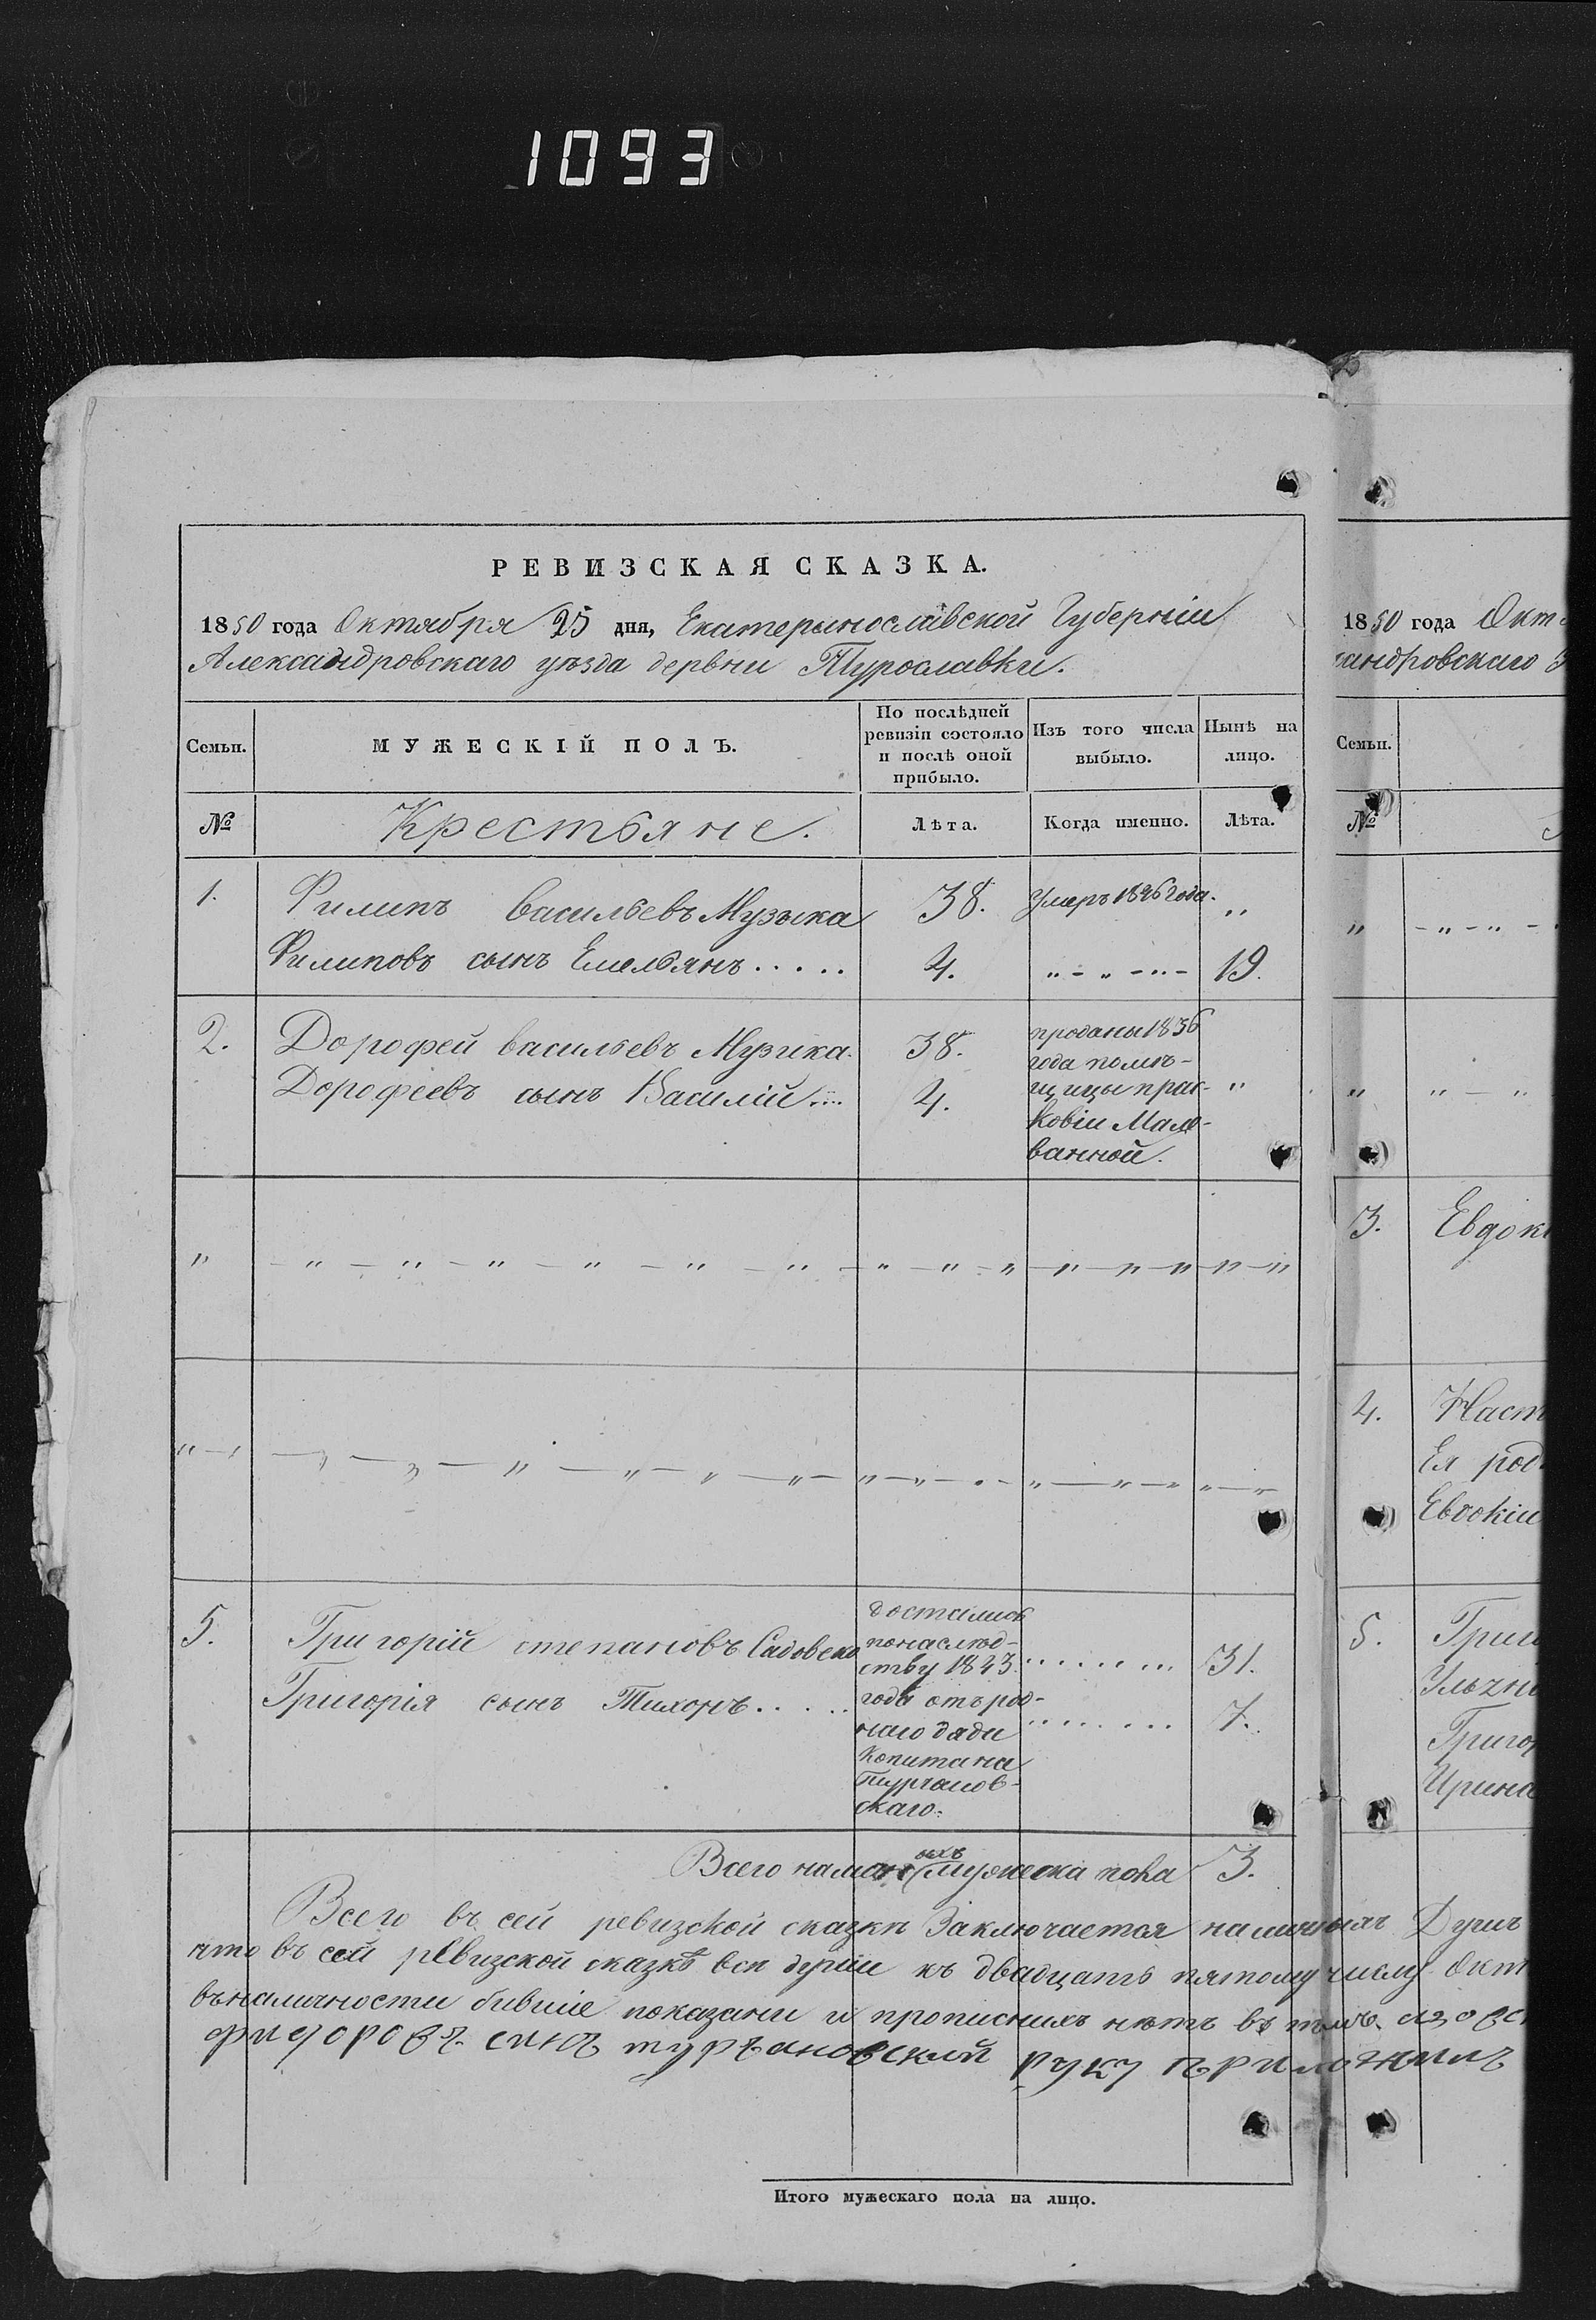 1093
РЕВИЗСКАЯ СКАЗКА.
1850 года Октября 25 дня, Екатеринославской Губерніи
Александровскаго уѣзда деревни Турославки.
Семьи.
МУЖЕСКІЙ ПОЛЪ.
По послѣдней ревизіи состояло и послѣ оной прибыло.
Изъ того числа выбыло.
Нынѣ на лицо.
№
Крестьяне.
Лѣта.
Когда именно.
Лѣта.
1. Филипъ Васильевъ Музыка 38. Умеръ 1846 года. „
Филиповъ сынъ Емельянъ ..... 4. „ - „ - „ - 19.
2. Дорофей Васильевъ Музика. 38. проданы 1836
года помѣ-
Дорофеевъ сынъ Василій .... 4. щицы прас- „
ковіи Мале-
ванной.
„ - „ - „ - „ - „ - „ - „ - „ - „ - „ - „ - „ - „ - „ - „
„ - „ - „ - „ - „ - „ - „ - „ - „ - „ - „ - „ - „ - „
5. Григорій степановъ Садовско достались
по наслѣд-
ству 1843 ........ 31.
Григорія сынъ Тихонъ ..... года отъ род-
наго дяди ........ 7.
Копитана
Турчанов-
скаго.
Всего наличныхъ мужеска пола 3.
Всего въ сей ревизской сказки Заключается наличныхъ Душъ
что въ сей ревизской сказкѣ всѣ души къ двадцать пятому числу Окт
въ наличности бывшіе показани и прописнихъ нѣтъ въ томъ
фиодоровъ синъ турчановский руку приложилъ
Итого мужескаго пола на лицо.
1850 года Окт
сандровскаго
Семьи.
№
„ - „ - „ -
„ „ - „
3. Евдоки
4. Наст
Ея род
Евдокіи
5. Григ
Ульяни
Григор
Ирина